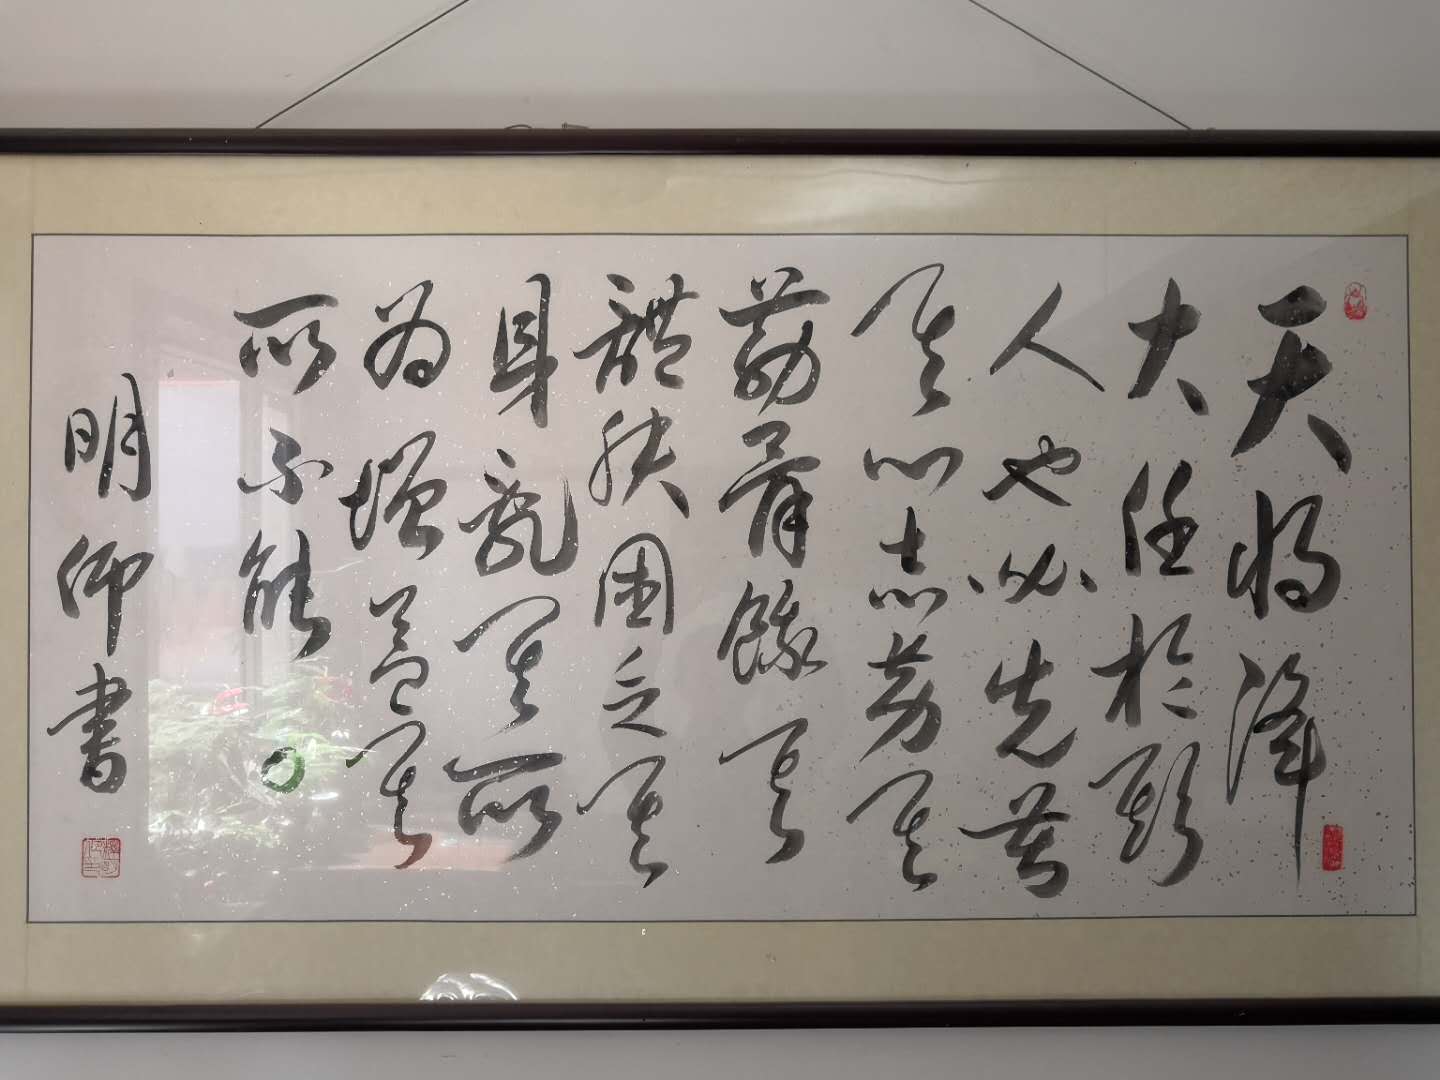 天将降
大任於斯
人也必先苦
其心志劳其
筋骨餓其
體肤困乏其
身亂其所
為增益其
所不能。
明仰書